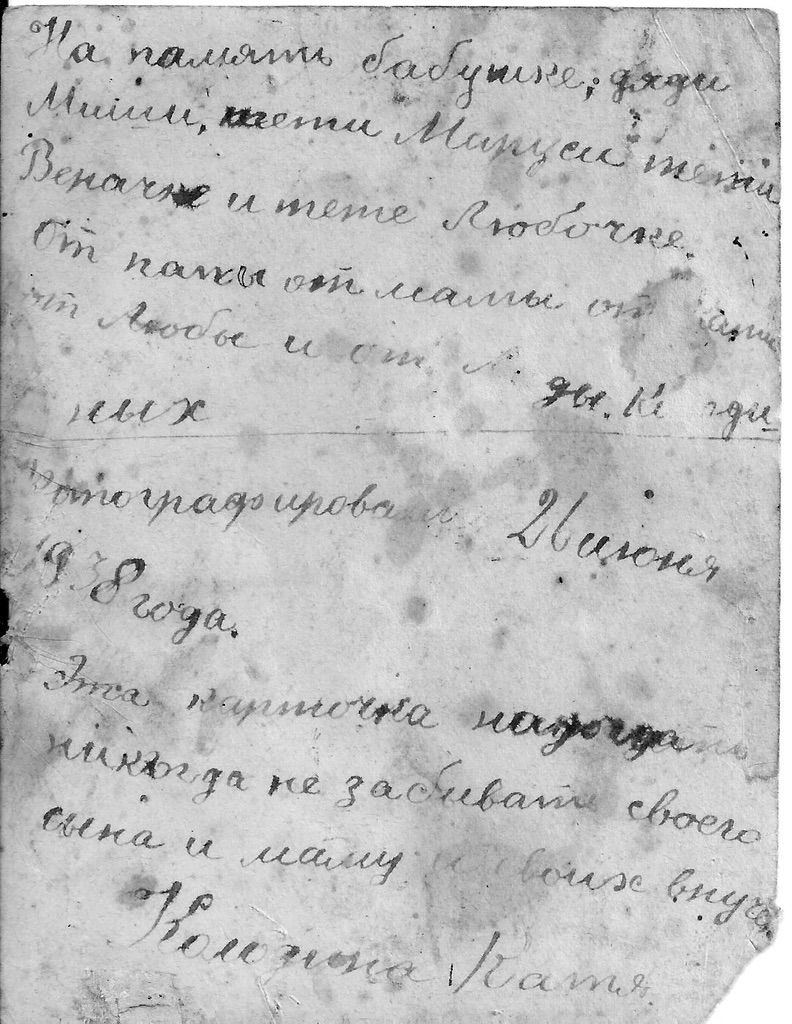 На память бабушке, дяди
Миши, тети Маруси тети
Веначке и тете Любочке.
От папы от мамы от
от Любы и от
ных
фотографирова 26 июня
1938 года.
Эта карточка
никогда не забивате своего
сына и маму и своих внуче
Катя